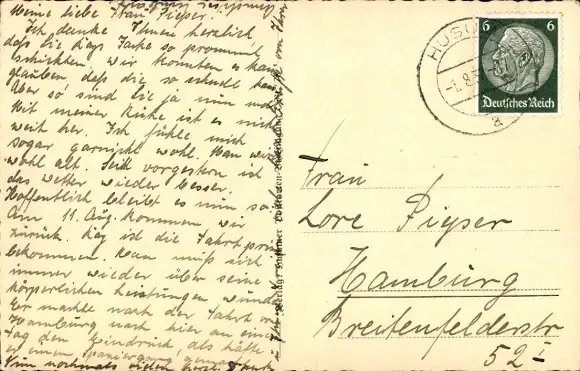 Meine liebe Frau Pieper!
Ich danke Ihnen herzlich
daß Sie Kays Jacke so prommt
schickten. Wir konnten es kaum
glauben daß die so schnell
Aber so sind Sie ja nun
Mit meiner Ruhe ist es nicht
weit her. Ich fühle mich
sogar garnicht wohl. Man wird
wohl alt. Seit vorgestern ist
das Wetter wieder besser.
Hoffentlich bleibt es nun so.
Am 11. Aug. kommen wir
zurück. Kay ist die Fahrt prima
bekommen. Man muß sich
immer wieder über seine
körperlichen Leistungen wundern
Er machte nach der Fahrt von
Hamburg nach hier an einem
Tag den Eindruck, als hätte
er einen Spaziergang gemacht.
Nun nochmals vielen herzl. Dank
HUSUM
-1.8.3
a
6 6
Deutsches Reich
Frau
Lore Pieper
Hamburg
Breitenfelderstr
52 I